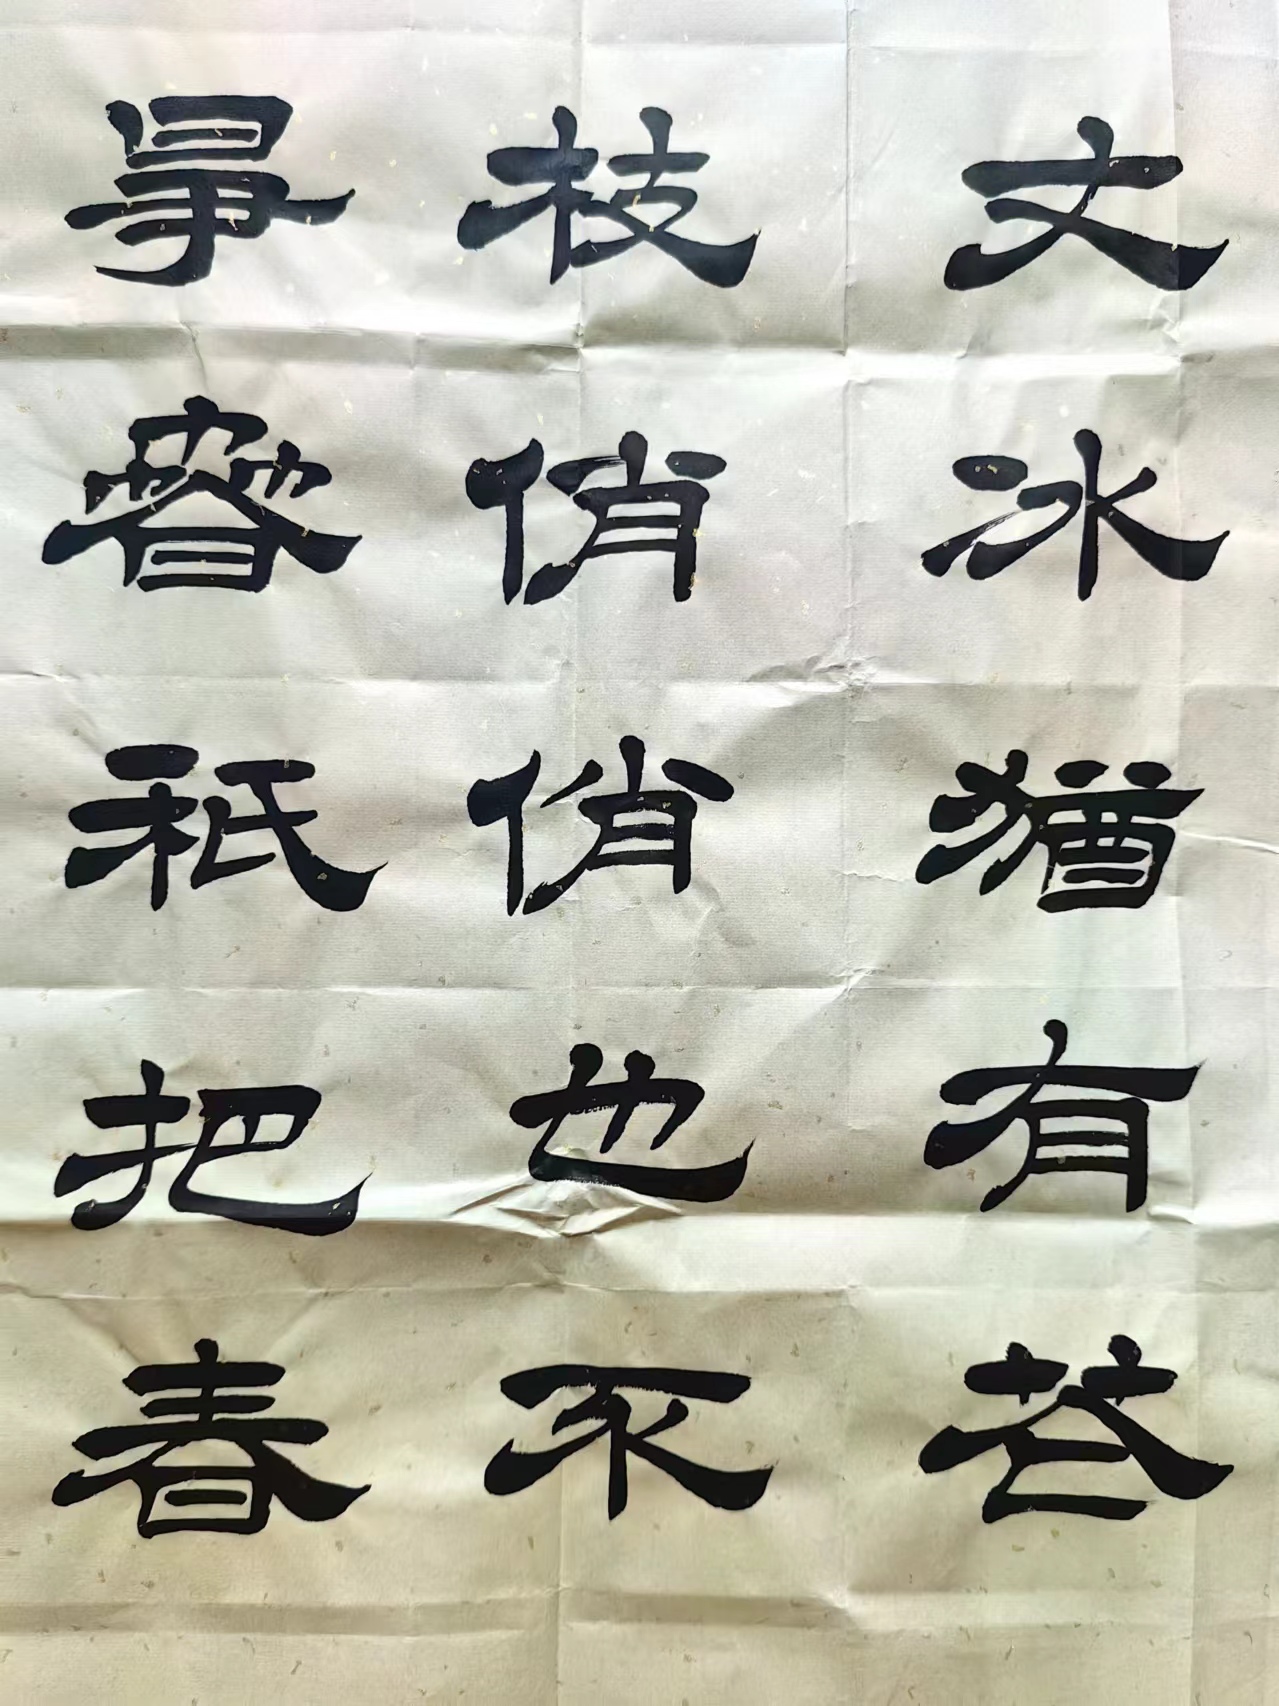 丈冰猶有花
枝俏俏也不
爭春祇把春